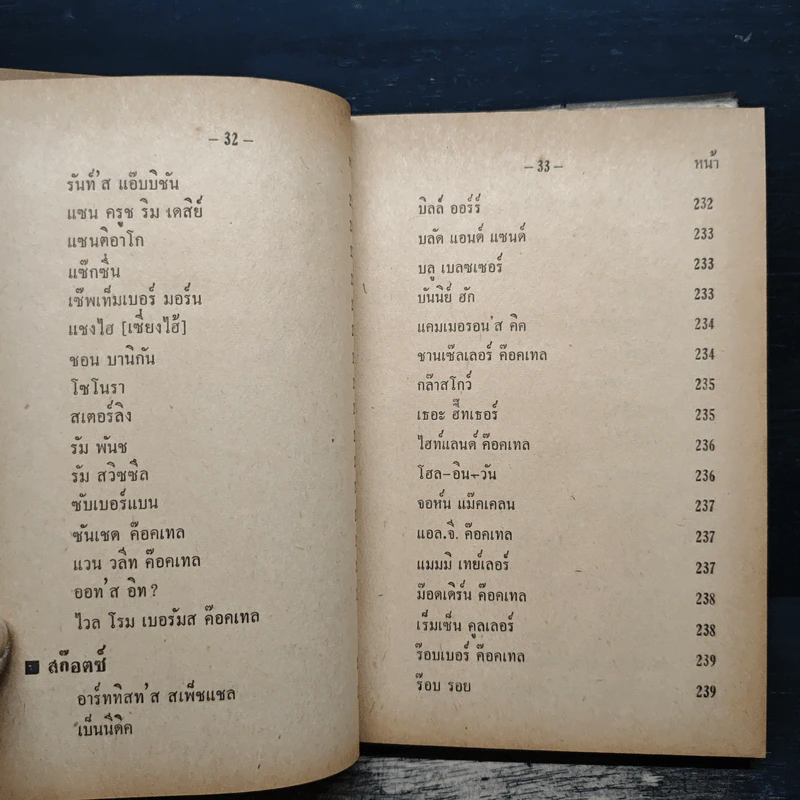 – 32 –
รันท์'ส แอ๊บบิชัน
แซน ครูช ริม เดสิย์
แซนติอาโก
แซ๊กซึ่น
เซ๊พเท็มเบอร์ มอร์น
แชงไฮ [เซี่ยงไฮ้]
ชอน บานิกัน
โซโนรา
สเตอร์ลิง
รัม พันช
รัม สวิซซึล
ซับเบอร์แบน
ซันเชด ค๊อคเทล
แวน วลีท ค๊อคเทล
ออท'ส อิท ?
ไวล โรม เบอรัมส ค๊อคเทล
■ สก๊อตช์
อาร์ททิสท'ส สเพ็ชแชล
เบ็นนีดิค
– 33 –
หน้า
บิลล์ ออร์ร์ 232
บลัด แอนด์ แซนด์ 233
บลู เบลซเซอร์ 233
บันนิย์ ฮัก 233
แคมเมอรอน'ส คิค 234
ชานเซ๊ลเลอร์ ค๊อคเทล 234
กล๊าสโกว์ 235
เธอะ ฮี๊ทเธอร์ 235
ไฮท์แลนด์ ค๊อคเทล 236
โฮล-อิน-วัน 236
จอห์น แม๊คเคลน 237
แอล.จี. ค๊อคเทล 237
แมมมี เทย์เลอร์ 237
ม๊อดเดิร์น ค๊อคเทล 238
เร็มเซ็น คูลเลอร์ 238
ร๊อบเบอร์ ค๊อคเทล 239
ร๊อบ รอย 239